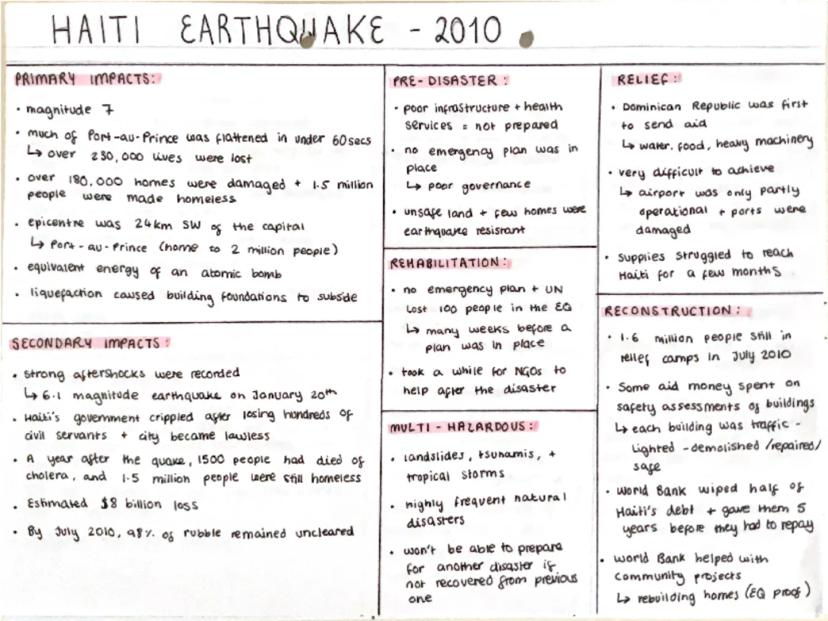 HAITI EARTHQUAKE - 2010
PRIMARY IMPACTS:
• magnitude 7
• much of Port-au-Prince was flattened in under 60secs
↳ over 230,000 lives were lost
• over 180,000 homes were damaged + 1.5 million
people were made homeless
• epicentre was 24km SW of the capital
↳ Port-au-Prince (home to 2 million people)
• equivalent energy of an atomic bomb
• liquefaction caused building foundations to subside
SECONDARY IMPACTS:
• strong aftershocks were recorded
↳ 6.1 magnitude earthquake on January 20th
• Haiti's government crippled after losing hundreds of
civil servants + city became lawless
• A year after the quake, 1500 people had died of
cholera, and 1.5 million people were still homeless
• Estimated $8 billion loss
• By July 2010, 98% of rubble remained uncleared
PRE-DISASTER:
• poor infrastructure + health
services = not prepared
• no emergency plan was in
place
↳ poor governance
• unsafe land + few homes were
earthquake resistant
REHABILITATION:
• no emergency plan + UN
lost 100 people in the EQ
↳ many weeks before a
plan was in place
• took a while for NGOs to
help after the disaster
MULTI-HAZARDOUS:
• landslides, tsunamis, +
tropical storms
• highly frequent natural
disasters
• won't be able to prepare
for another disaster if
not recovered from previous
one
RELIEF:
• Dominican Republic was first
to send aid
↳ water, food, heavy machinery
• very difficult to achieve
↳ airport was only partly
operational + ports were
damaged
• supplies struggled to reach
Haiti for a few months
RECONSTRUCTION:
• 1.6 million people still in
relief camps in July 2010
• Some aid money spent on
safety assessments of buildings
↳ each building was traffic-
lighted - demolished/repaired/
safe
• World Bank wiped half of
Haiti's debt + gave them 5
years before they had to repay
• World Bank helped with
community projects
↳ rebuilding homes (EQ proof)